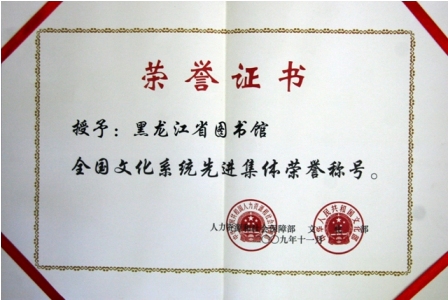 荣誉证书
授予：黑龙江省图书馆
全国文化系统先进集体荣誉称号。
人力资源社会保障部 文化部
二〇〇九年十一月